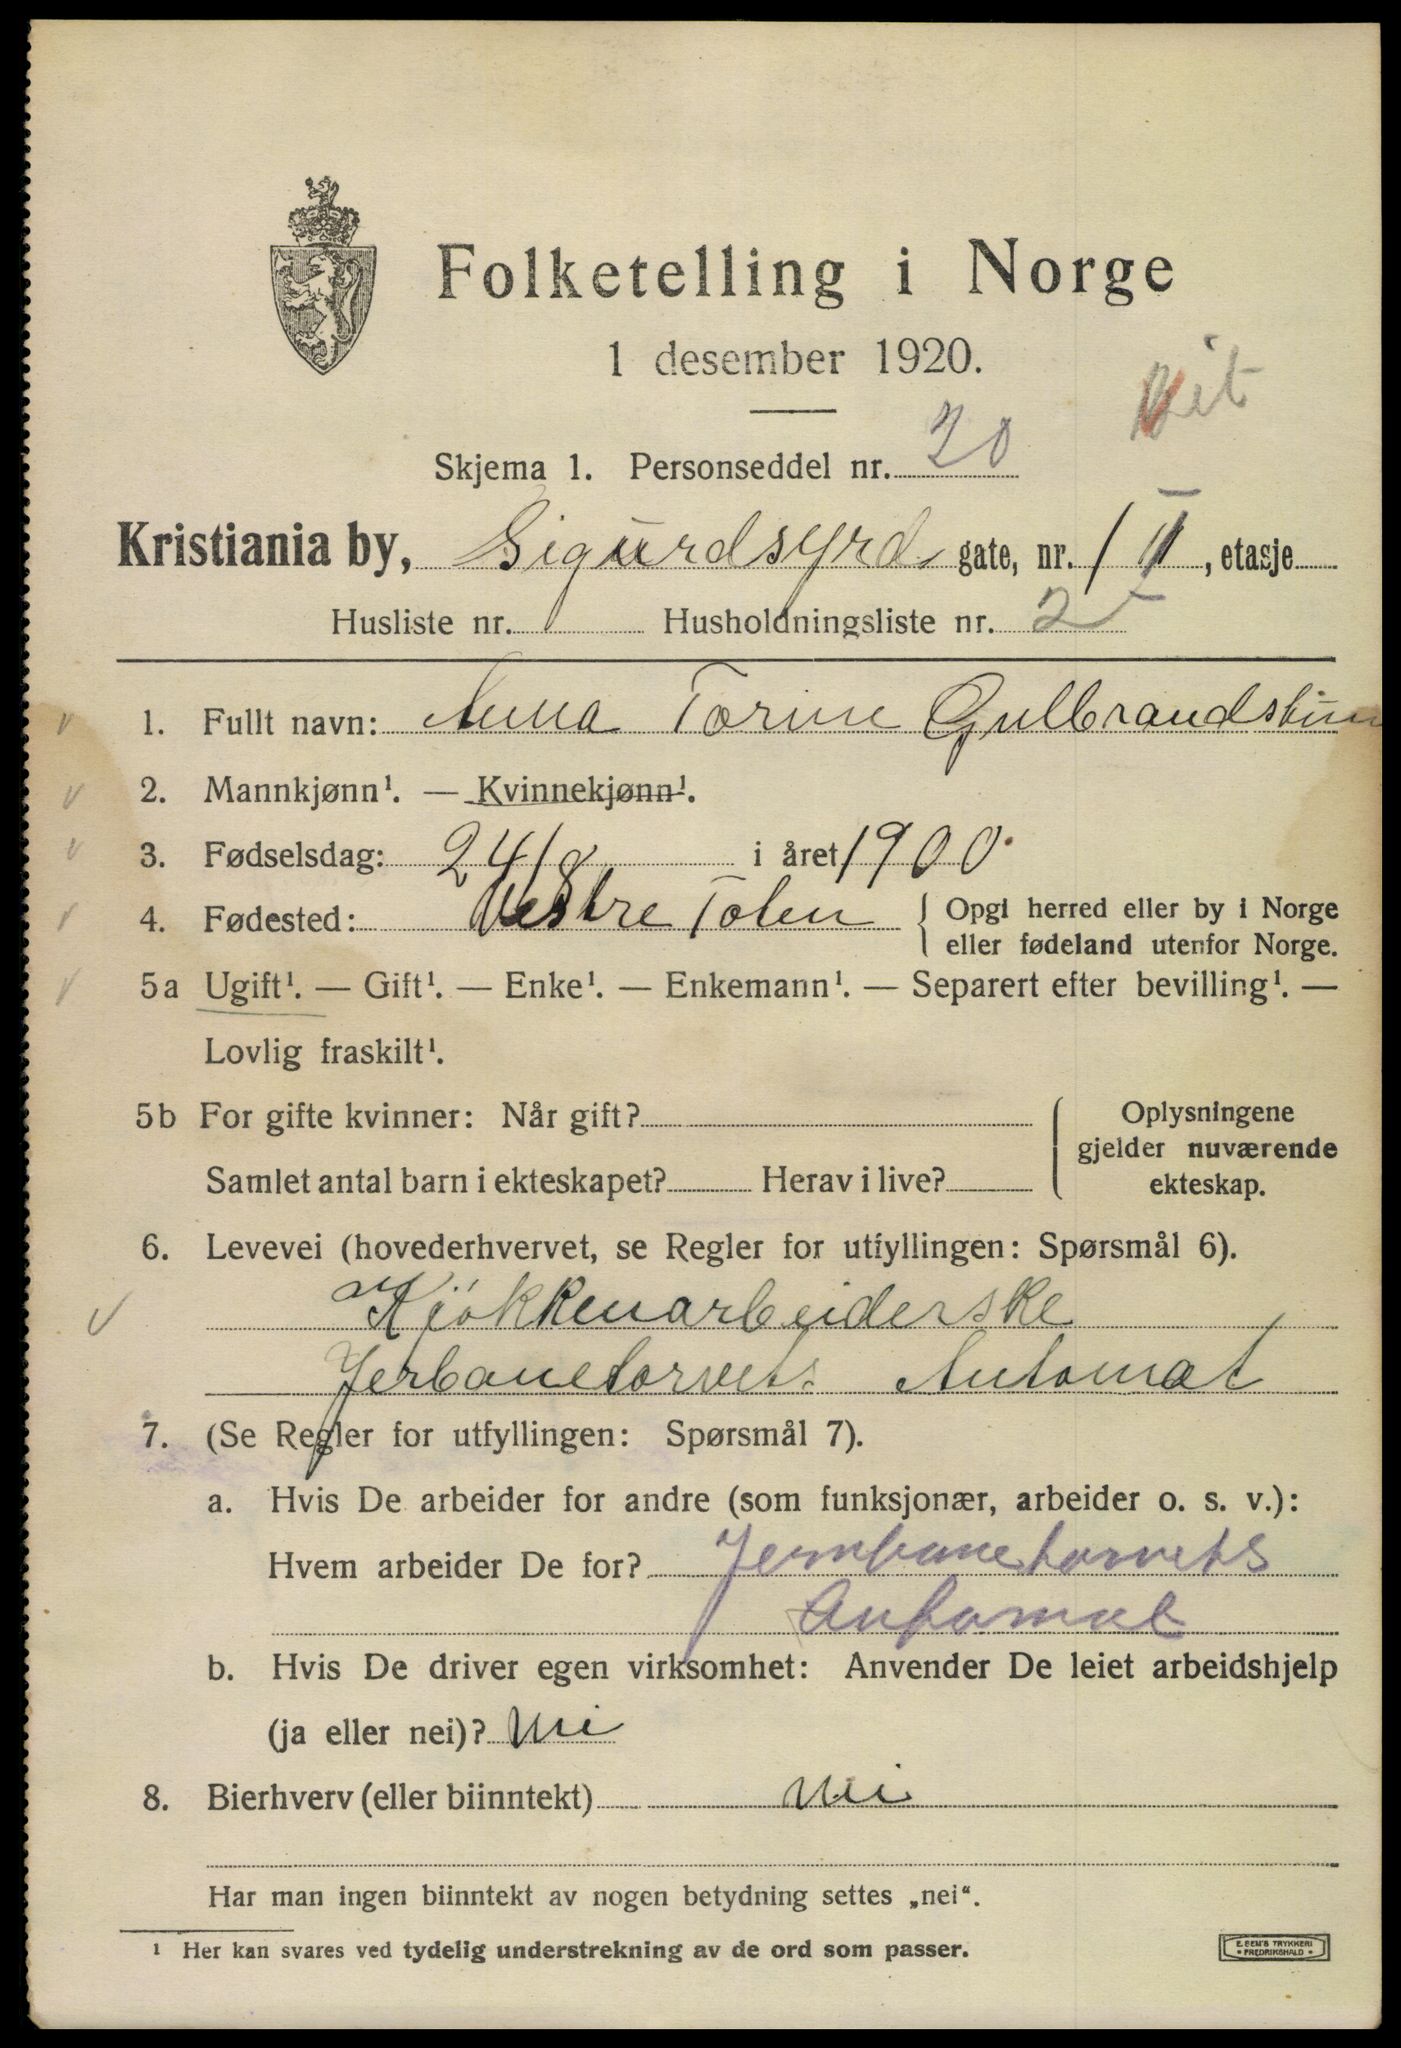 Folketelling i Norge
1 desember 1920.
Skjema 1. Personseddel nr. 20
Kristiania by, Sigurdsyrd gate, nr. 1 II, etasje
Husliste nr. Husholdningsliste nr. 2
1. Fullt navn: Anna Torine Gulbrandshun
2. Mannkjønn¹. — Kvinnekjønn¹.
3. Fødselsdag: 24/8 i året 1900.
4. Fødested: Vestre Toten { Opgi herred eller by i Norge
eller fødeland utenfor Norge.
5a Ugift¹. — Gift¹. — Enke¹. — Enkemann¹. — Separert efter bevilling¹. —
Lovlig fraskilt¹.
5b For gifte kvinner: Når gift? { Oplysningene
gjelder nuværende
Samlet antal barn i ekteskapet? Herav i live? ekteskap.
6. Levevei (hovederhvervet, se Regler for utfyllingen: Spørsmål 6).
Kjøkkenarbeiderske
Jerbanetorvets Automat
7. (Se Regler for utfyllingen: Spørsmål 7).
a. Hvis De arbeider for andre (som funksjonær, arbeider o. s. v.):
Hvem arbeider De for? Jernbanetorvets
Automat
b. Hvis De driver egen virksomhet: Anvender De leiet arbeidshjelp
(ja eller nei)? nei
8. Bierhverv (eller biinntekt) nei
Har man ingen biinntekt av nogen betydning settes „nei“.
¹ Her kan svares ved tydelig understrekning av de ord som passer.
E. SEM'S TRYKKERI
• FREDRIKSHALD •